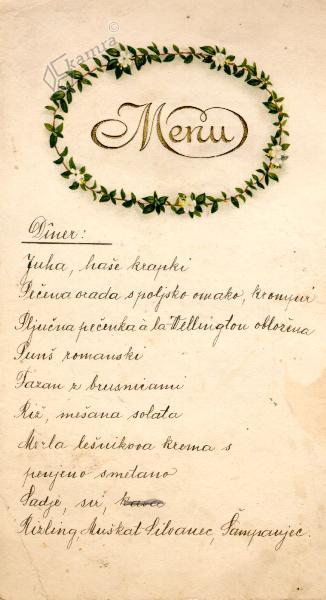 kamra
Menu
Dîner:
Juha, haše krapki
Pečena orada s poljsko omako, krompir
Pljučna pečenka à la Wellington obložena
Punš romanski
Fazan z brusnicami
Riž, mešana solata
Mrzla lešnikova krema s
penjeno smetano
Sadje, sir, kava
Rizling, Muškat Silvanec, Šampanjec.